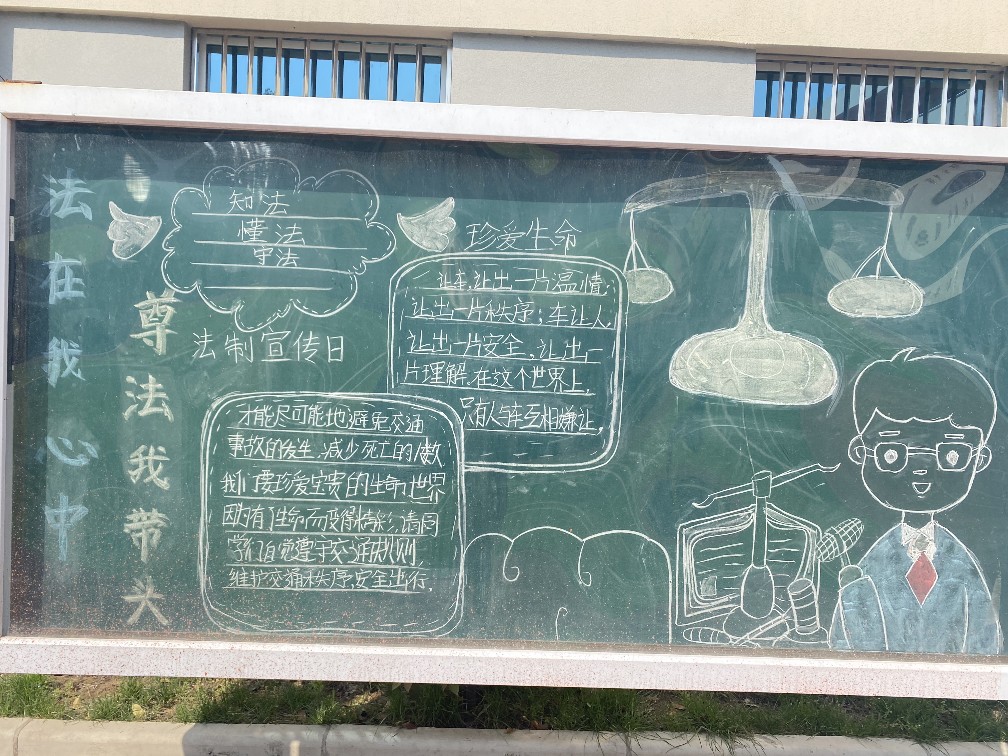 法在我心中
尊法我带头
知法
懂法
守法
法制宣传日
珍爱生命
让车,让出一片温情
让出一片秩序;车让人,
让出一片安全,让出一
片理解.在这个世界上,
只有人与车互相嫌让,
才能尽可能地避免交通
事故的发生,减少死亡的人数
我们要珍爱宝贵的生命,世界
因为有了生命而变得精彩,请同
学们自觉遵守交通规则,
维护交通秩序,安全出行.